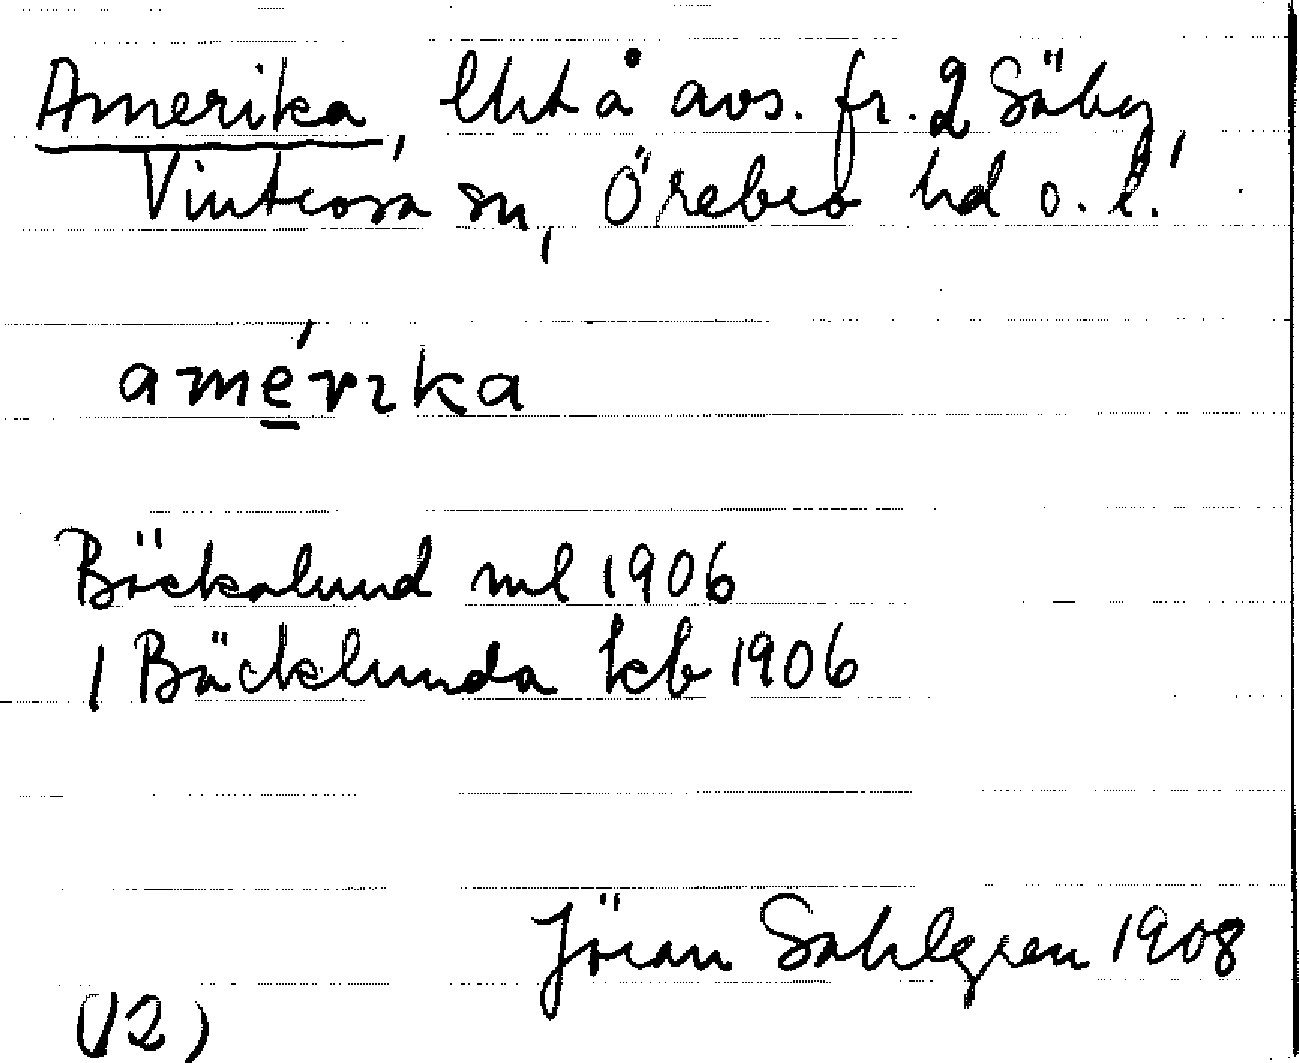 Amerika, lht å avs. fr. 2 Säby,
Vintrosa sn, Örebro hd o. l.
amérıka
Bäckalund ml 1906
1 Bäcklunda kb 1906
Jöran Sahlgren 1908
(12)